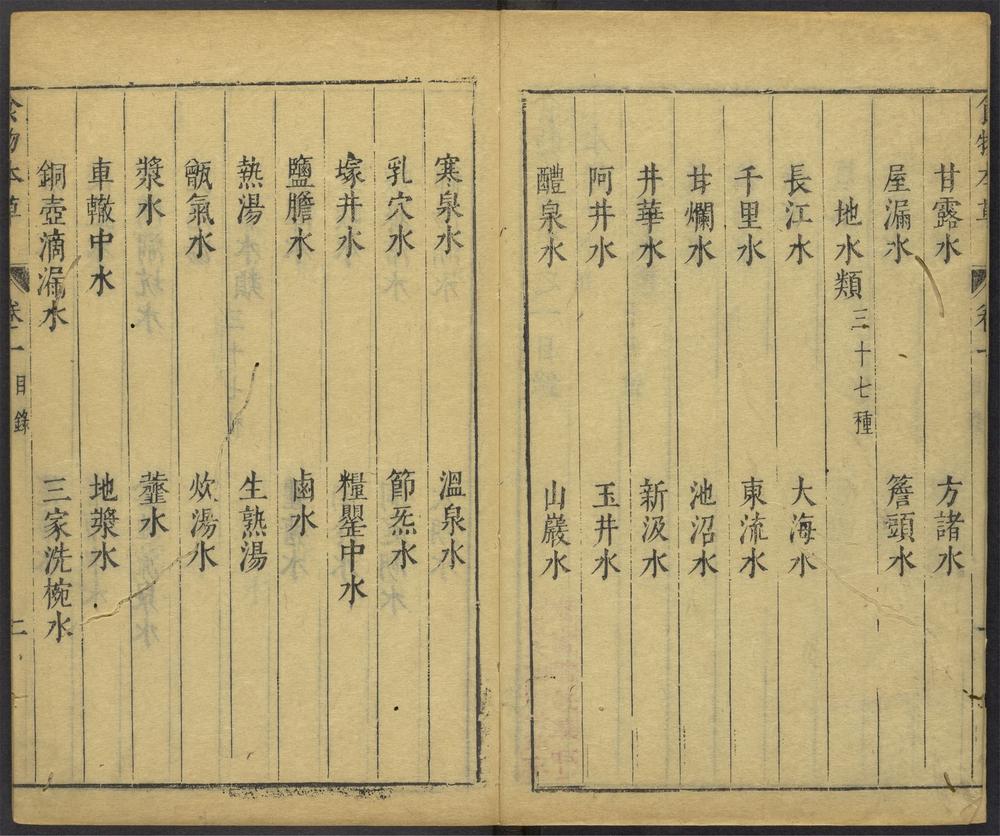 甘露水　方諸水
屋漏水　簷頭水
地水類三十七種
長江水　大海水
千里水　東流水
甘爛水　池沼水
井華水　新汲水
阿井水　玉井水
醴泉水　山巖水
寒泉水　溫泉水
乳穴水　節炁水
塚井水　糧罌中水
鹽膽水　鹵水
熱湯　生熟湯
甑氣水　炊湯水
漿水　虀水
車轍中水　地漿水
銅壺滴漏水　三家洗椀水
食物本草　卷一目錄　二